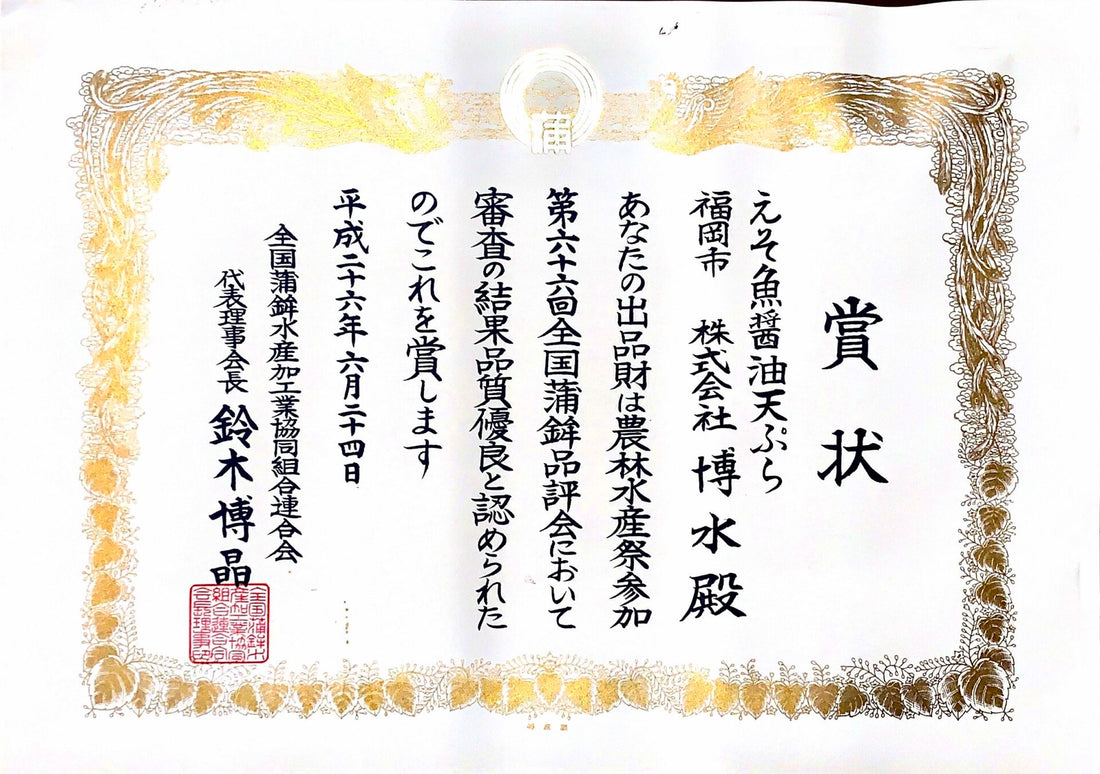 蒲
賞状
えそ魚醤油天ぷら
福岡市 株式会社 博水殿
あなたの出品財は農林水産祭参加
第六十六回全国蒲鉾品評会において
審査の結果品質優良と認められた
のでこれを賞します
平成二十六年六月二十四日
全国蒲鉾水産加工業協同組合連合会
代表理事会長 鈴木博晶